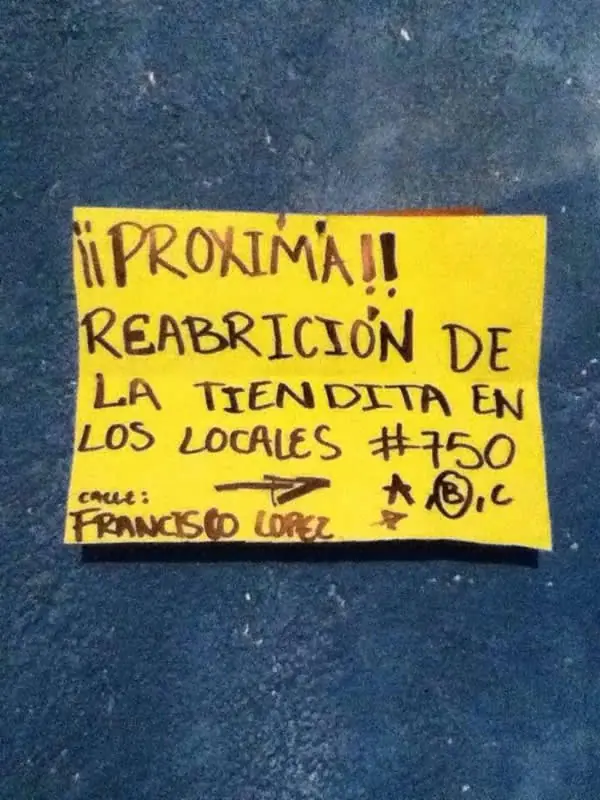 ¡¡PROXIMA!!
REABRICIÓN DE
LA TIENDITA EN
LOS LOCALES #750
→ A, B, C
CALLE:
FRANCISCO LOPEZ